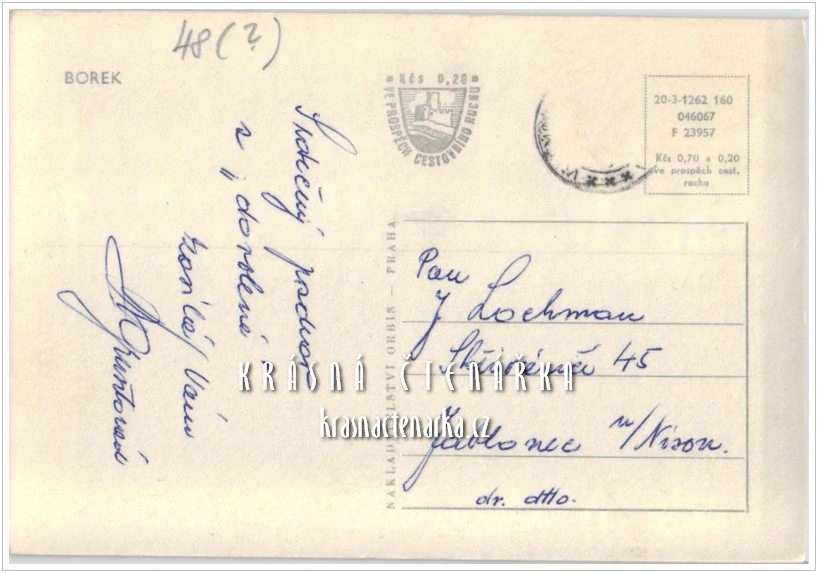 48(?)
BOREK
Kčs 0,20
VE PROSPĚCH CESTOVNÍHO RUCHU
20-3-1262 160
046067
F 23957
Kčs 0,70 a 0,20
ve prospěch cest.
ruchu
Srdečný pozdrav
z „dovolené"
zasílá Vám
NAKLADATELSTVÍ ORBIS — PRAHA
Pan
J Lochman
45
Jablonec n/Nisou.
dr. dtto.
KRÁSNÁ ČTENÁŘKA
krasnactenarka.cz